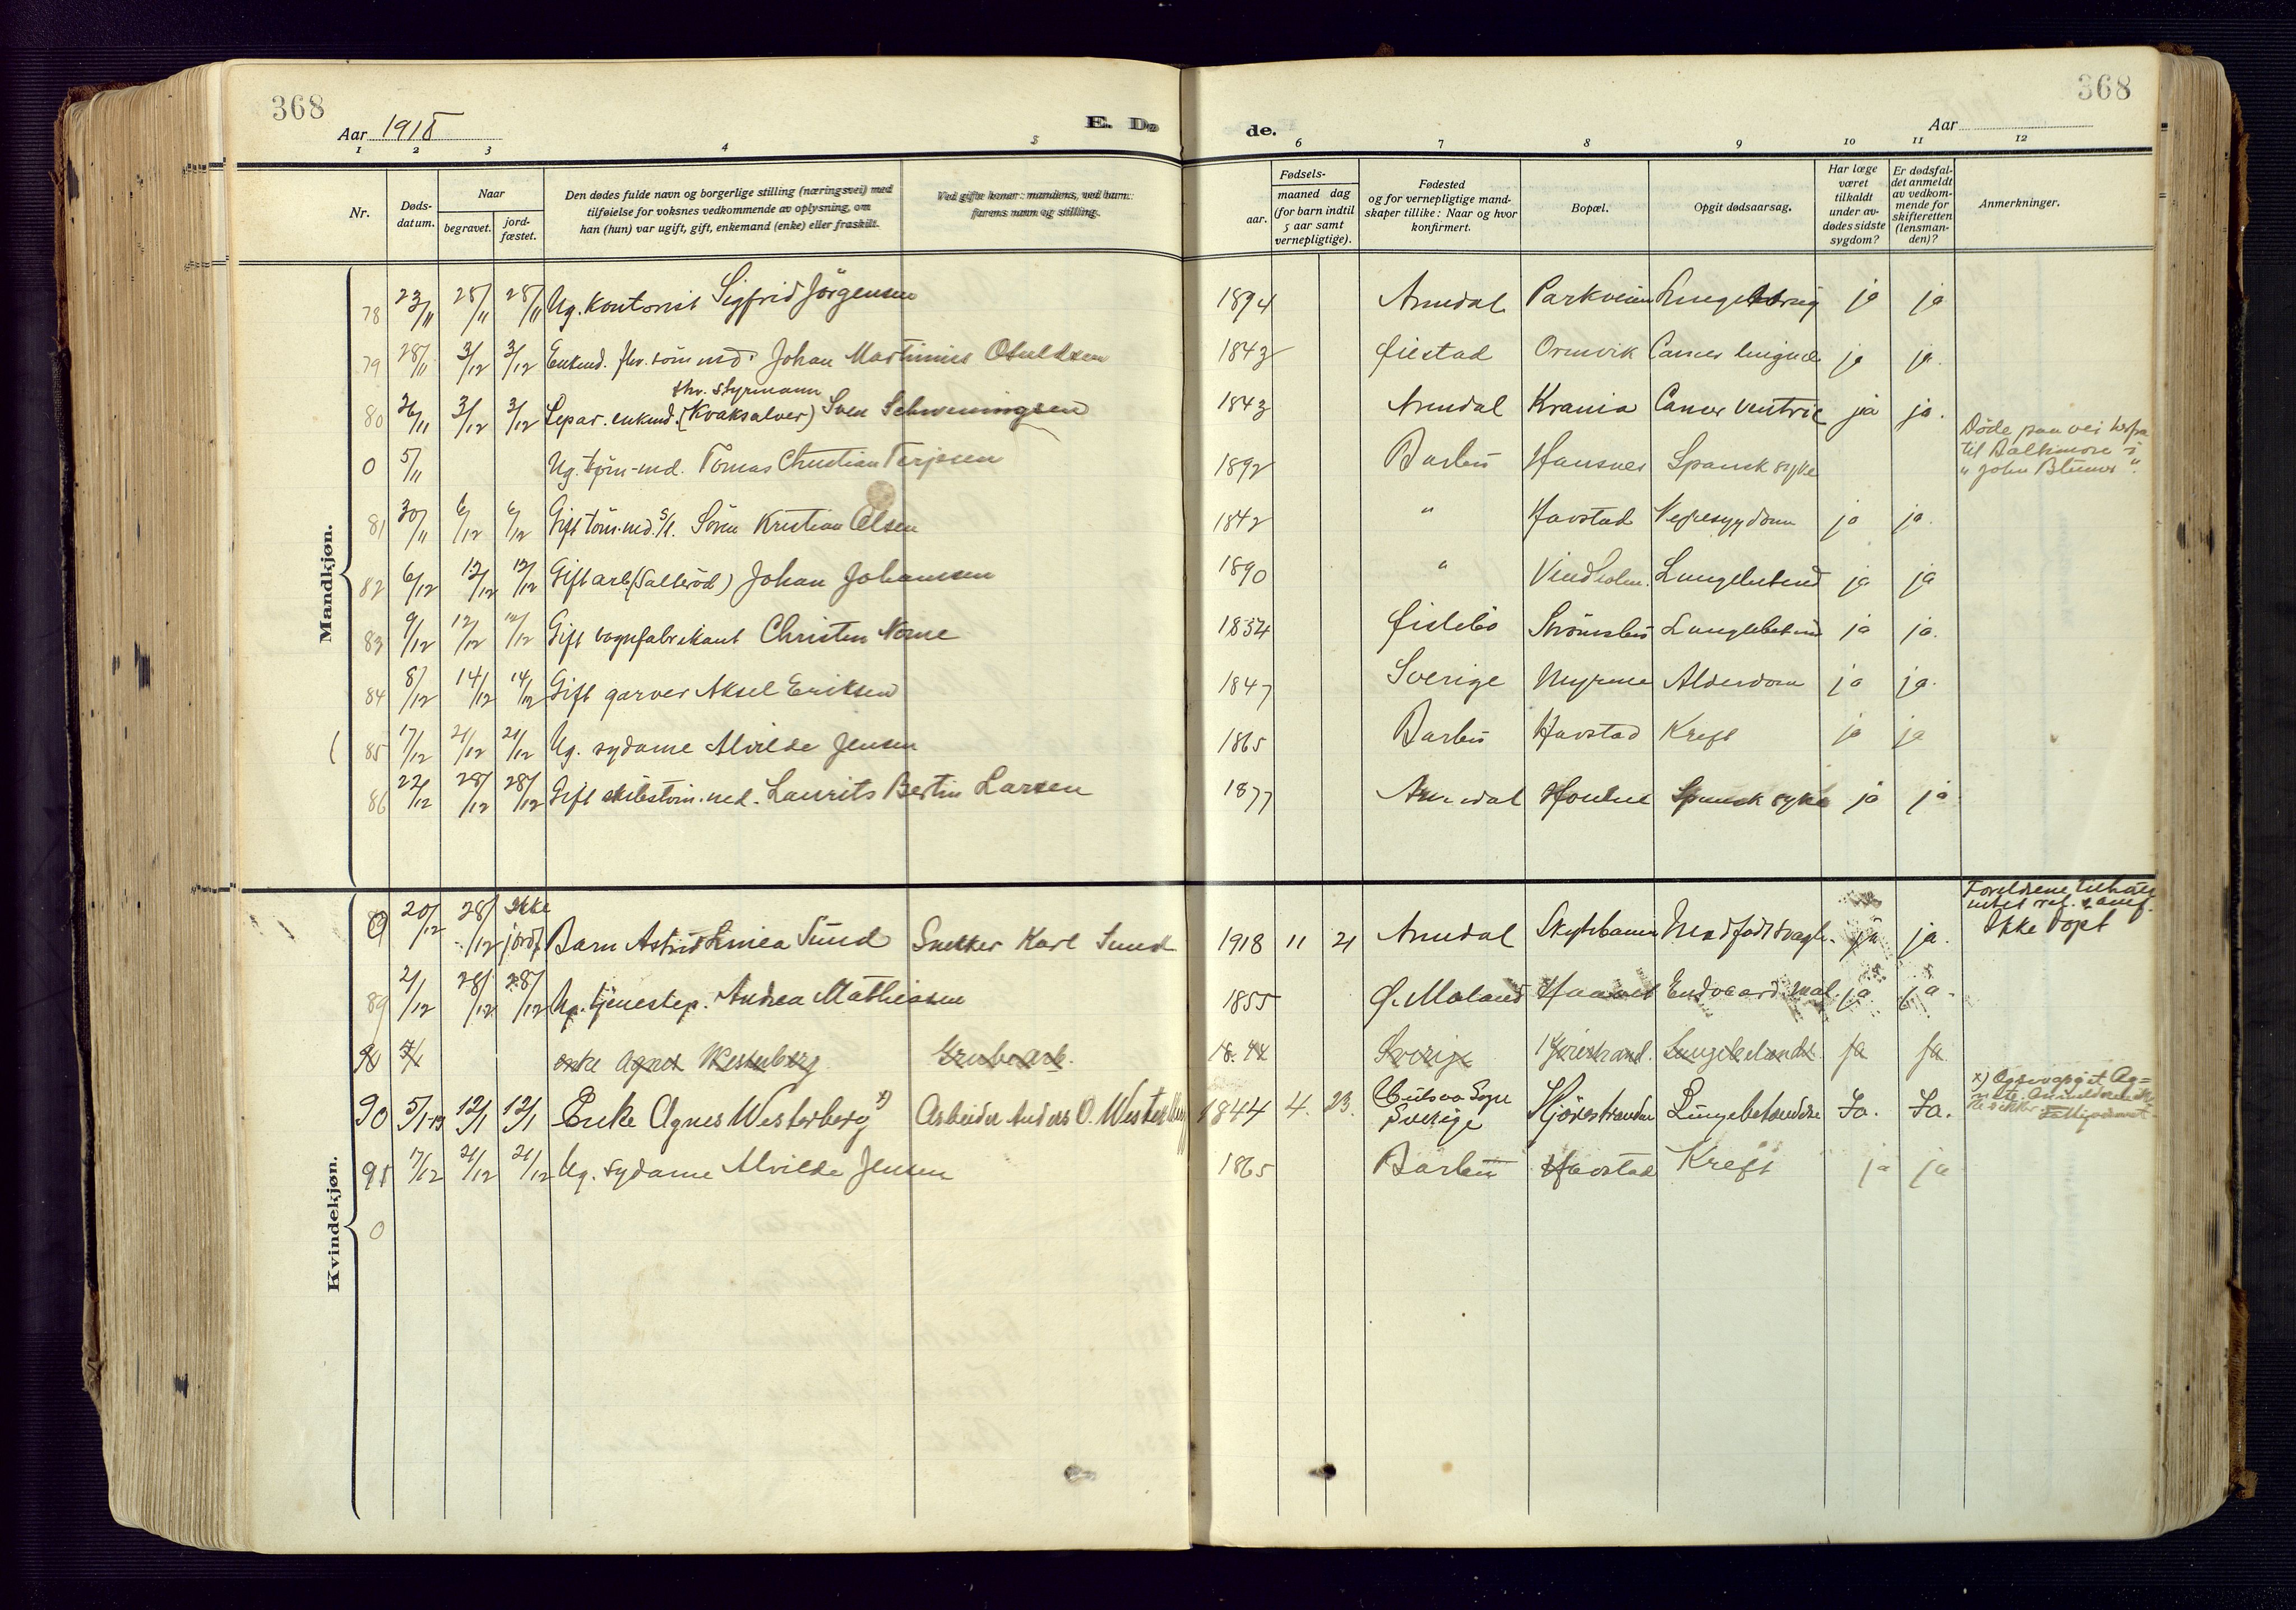 368
368
Aar 1918
E. Dø
de.
Aar
1 2 3 4 5 6 7 8 9 10 11 12
Nr.
Døds-
datum.
Naar
begravet.
jord-
fæstet.
Den dødes fulde navn og borgerlige stilling (næringsvei) med
tilføielse for voksnes vedkommende av oplysning, om
han (hun) var ugift, gift, enkemand (enke) eller fraskilt.
Ved gifte koner: mandens, ved barn:
farens navn og stilling.
Fødsels-
aar.
maaned dag
(for barn indtil
5 aar samt
vernepligtige).
Fødested
og for vernepligtige mand-
skaper tillike: Naar og hvor
konfirmert.
Bopæl.
Opgit dødsaarsag.
Har læge
været
tilkaldt
under av-
dødes sidste
sygdom?
Er dødsfal-
det anmeldt
av vedkom-
mende for
skifteretten
(lensman-
den)?
Anmerkninger.
Mandkjøn.
78 23/11 28/11 28/11 Ug. kontorist Sigfrid Jörgensen 1894 Arendal Parkveien ja ja
79 28/11 3/12 3/12 Enkmd. fhv. töm.md. Johan Martinius Osuldsen 1843 Øiestad Ormvik Cancer ja ja.
fhv. styrmann
80 26/11 3/12 3/12 Separ. enkmd. (Kvaksalver) Sven Schweningsen 1843 Arendal Krania Cancer ventric ja ja.
0 5/11 Ug. töm-md. Tomas Christian Terjesen 1892 Barbu Spansk syke
Døde paa vei
til Baltimore i
81 30/11 6/12 6/12 Gift töm.md. s/k. Sören Kristian Olsen 1842 " Havstad ja ja.
82 6/12 12/12 12/12 Gift arb. (Salteröd) Johan Johannsen 1890 " Vindholm. ja ja
83 9/12 12/12 12/12 Gift vognfabrikant Christen Norne 1834 Strömsbu Lungebetend ja ja.
84 8/12 14/12 14/12 Gift garver Aksel Eriksen 1847 Sverige Myrene Alderdom ja ja.
85 17/12 21/12 21/12 Ug. sydame Alvilde Jensen 1865 Barbu Havstad Kreft ja ja
86 22/12 28/12 28/12 Gift skibstöm.md. Laurits Bertin Larsen 1877 Arendal Spansk syke ja ja
Kvindekjøn.
0 20/12 28/12 Ikke jordf. Barn Astrid Linnea Sund Snekker Karl Sund 1918 11 21 Arendal Medfødt svagh. ja ja.
Forældrene
Ikke döpt
89 21/12 28/12 28/12 Ug. tjenestep. Andrea Mathiasen 1855 Ø. Moland ja ja.
enke Agnes Westerberg 18.44 Sverige ja ja
90 5/1-19 12/1 12/1 Enke Agnes Westerberg x) Arbeider Anders O. Westerberg 1844 4. 23. Sverige Kjörestranden Lungebetendelse Ja. Ja.
91 17/12 21/12 21/12 Ug. sydame Alvilde Jensen 1865 Barbu Havstad Kreft ja ja
0